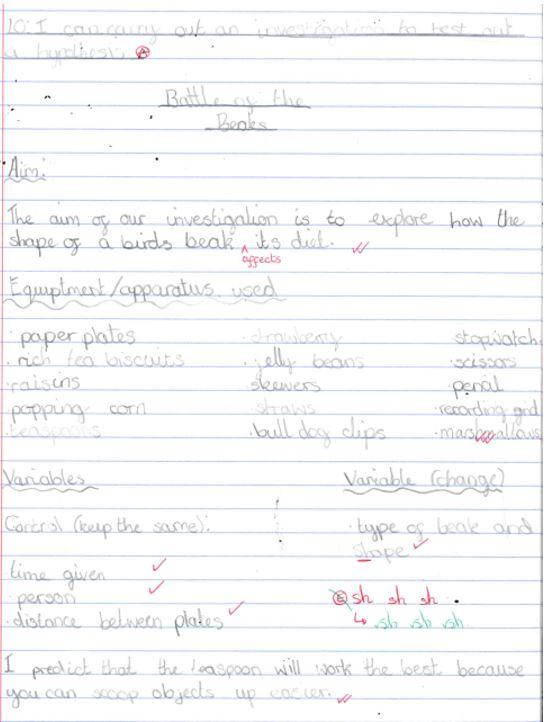 10: I can carry out an investigation to test out
a hypothesis. A
Battle of the
Beaks
Aim:
The aim of our investigation is to explore how the
shape of a birds beak ^ its diet.
affects
Equiptment/apparatus used
· paper plates · strawberry stopwatch.
· rich tea biscuits · jelly beans · scissors
· raisins skewers pencil
popping corn straws · recording grid
· teaspoons · bull dog clips · marshmallows
Variables Variable (change)
Control (keep the same): · type of beak and
shape
time given
· person sh sh sh
· distance between plates sh sh sh
I predict that the teaspoon will work the best because
you can scoop objects up easier.